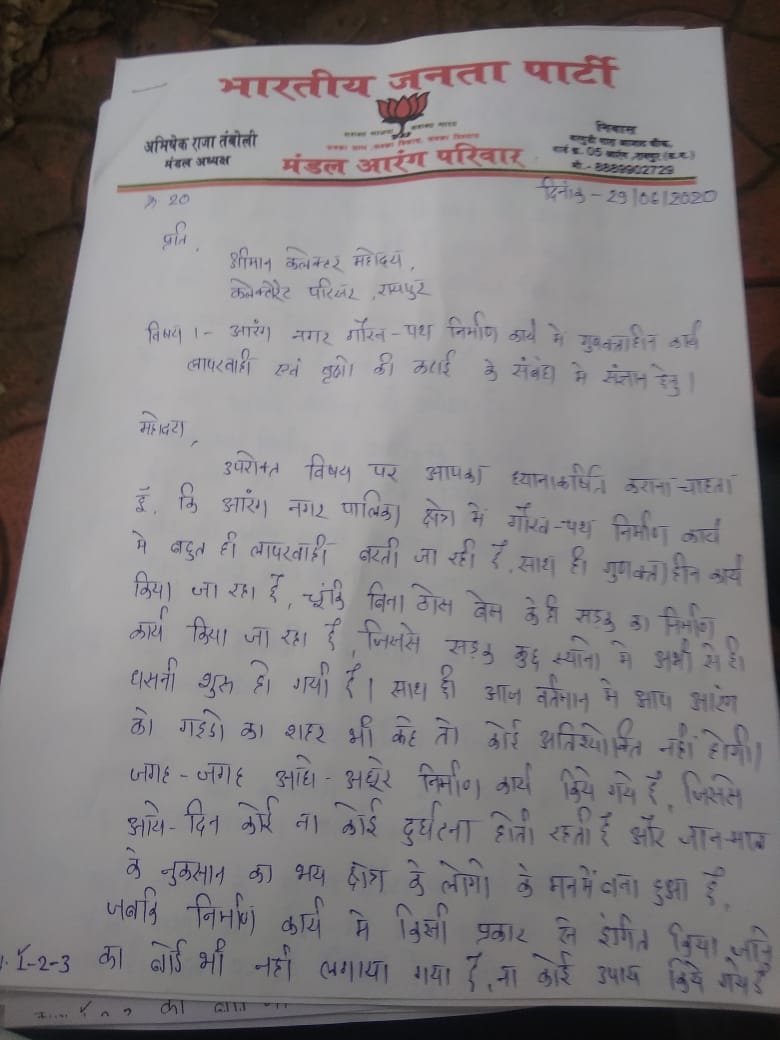 भारतीय जनता पार्टी
अभिषेक राजा तंबोली
मंडल अध्यक्ष
मंडल आरंग परिवार
निवास
वार्ड क्र. 05 आरंग, रायपुर (छ.ग.)
मो.- 8889902729
क्र. 20
दिनांक - 29/06/2020
प्रति,
श्रीमान कलेक्टर महोदय,
कलेक्टोरेट परिसर, रायपुर
विषय :- आरंग नगर गौरव-पथ निर्माण कार्य मे गुणवत्ताहीन कार्य
लापरवाही एवं वृक्षो की कटाई के संबंध मे संज्ञान हेतु।
महोदय,
उपरोक्त विषय पर आपका ध्यानाकर्षित कराना चाहता
हूँ, कि आरंग नगर पालिका क्षेत्र में गौरव-पथ निर्माण कार्य
मे बहुत ही लापरवाही बरती जा रही है, साथ ही गुणवत्ताहीन कार्य
किया जा रहा है, चूंकि बिना ठोस बेस के ही सड़क का निर्माण
कार्य किया जा रहा है, जिससे सड़क कुछ स्थानो मे अभी से ही
धसनी शुरू हो गयी है। साथ ही आज वर्तमान मे आप आरंग
को गड्डो का शहर भी कहे तो कोई अतिश्योक्ति नहीं होगी।
जगह-जगह आधे-अधूरे निर्माण कार्य किये गये है, जिससे
आये-दिन कोई ना कोई दुर्घटना होती रहती है और जान-माल
के नुकसान का भय क्षेत्र के लोगो के मन में बना हुआ है,
जबकि निर्माण कार्य मे किसी प्रकार से इंगित किया जाने
का बोर्ड भी नहीं लगाया गया है, ना कोई उपाय किये गये है
1-2-3